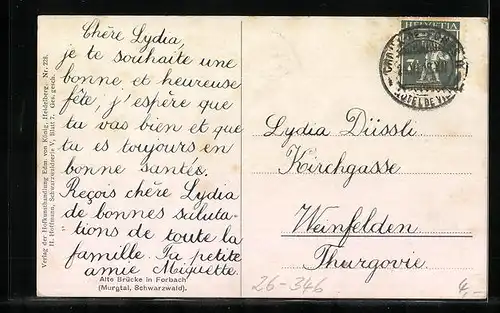 Chère Lydia,
je te souhaite une
bonne et heureuse
fête, j'espère que
tu vas bien et que
tu es toujours en
bonne santé.
Reçois chère Lydia
de bonnes saluta-
tions de toute la
famille. Ta petite
amie Miquette.
Alte Brücke in Forbach
(Murgtal, Schwarzwald).
Verlag der Hofkunsthandlung Edm. von König, Heidelberg. Nr. 228.
H. Hoffmann, Schwarzwaldserie V, Blatt 7. Ges. gesch.
HELVETIA
HOTEL DE VILLE
Lydia Düssli
Kirchgasse
Weinfelden
Thurgovie.
26-346
4,-